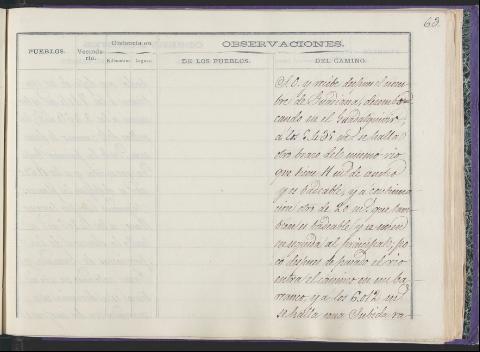 63.
PUEBLOS.
Vecinda-
rio.
Distancia en
Kilómetros Leguas
OBSERVACIONES.
DE LOS PUEBLOS.
DEL CAMINO.
S. O. y recibe despues el nom-
bre de Guadiana, desembo-
cando en el Guadalquivir;
a los se halla
otro brazo del mismo rio
que tiene 11 m.s de ancho
y es vadeable, y a continua-
cion otro de 20 m.s que tam-
bien es vadeable y se unen
enseguida al principal; po-
co despues de pasado el rio
entra el camino en un ba-
rranco, y a los 6.012 m
se halla una subida ra-